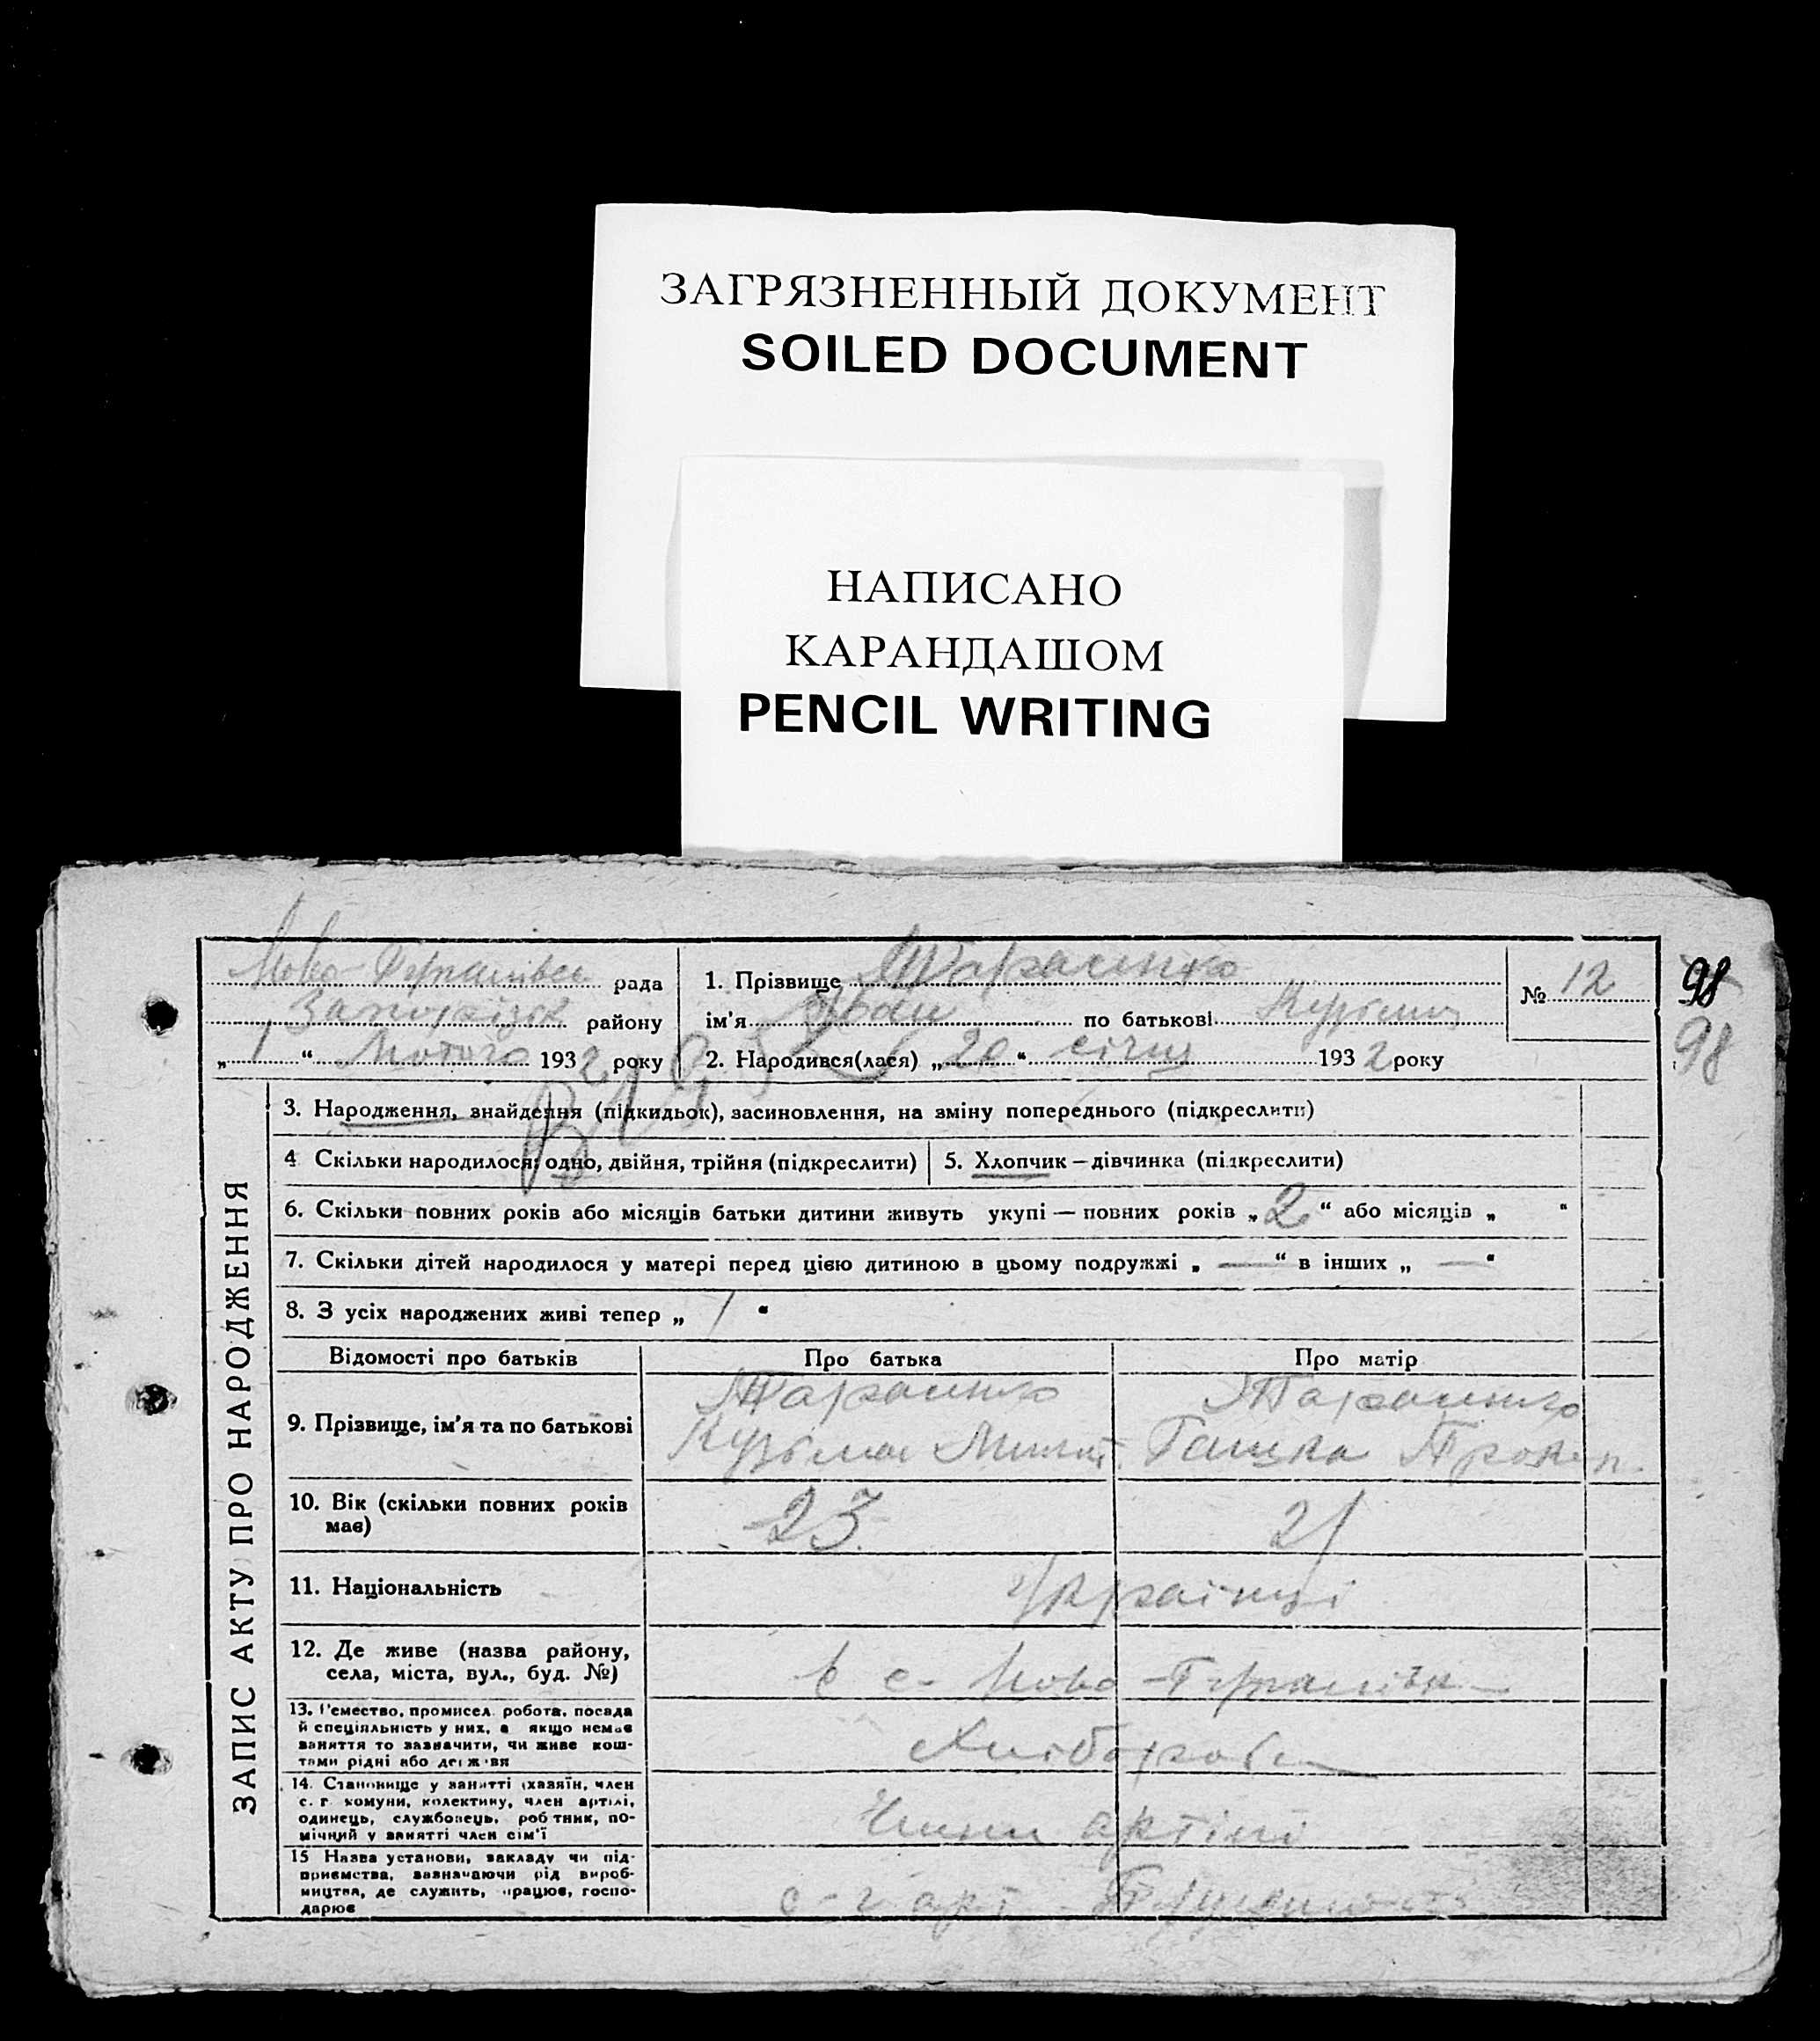 ЗАГРЯЗНЕННЫЙ ДОКУМЕНТ
SOILED DOCUMENT
НАПИСАНО
КАРАНДАШОМ
PENCIL WRITING
рада
Запорізьк району
„ 1 “ Лютого 1932 року
1. Прізвище Тараненко
ім'я Іван по батькові
2. Народився(лася) „ 20 “ січня 1932 року
№ 12
98
98
ЗАПИС АКТУ ПРО НАРОДЖЕННЯ
3. Народження, знайдення (підкидьок), засиновлення, на зміну попереднього (підкреслити)
4 Скільки народилося: одно, двійня, трійня (підкреслити)
5. Хлопчик – дівчинка (підкреслити)
6. Скільки повних років або місяців батьки дитини живуть укупі — повних років „ 2 “ або місяців „ “
7. Скільки дітей народилося у матері перед цією дитиною в цьому подружжі „ — “ в інших „ — “
8. З усіх народжених живі тепер „ 1 “
Відомості про батьків Про батька Про матір
9. Прізвище, ім'я та по батькові
Тараненко Тараненко
Кузьма Ганна Прокоп
10. Вік (скільки повних років
має)
23 21
11. Національність Українці
12. Де живе (назва району,
села, міста, вул., буд. №)
в с. Ново-
13. Ремество, промисел робота, посада
й спеціяльність у них, а якщо немає
заняття то зазначити, чи живе кош-
тами рідні або держави
Хлібороби
14. Становище у занятті (хазяїн, член
с. г. комуни, колективу, член артілі,
одинець, службовець, робітник, по-
мічний у занятті член сім'ї
Члени артілі
15 Назва установи, закладу чи під-
приємства, зазначаючи рід вироб-
ництва, де служить, працює, госпо-
дарює
с-г арт